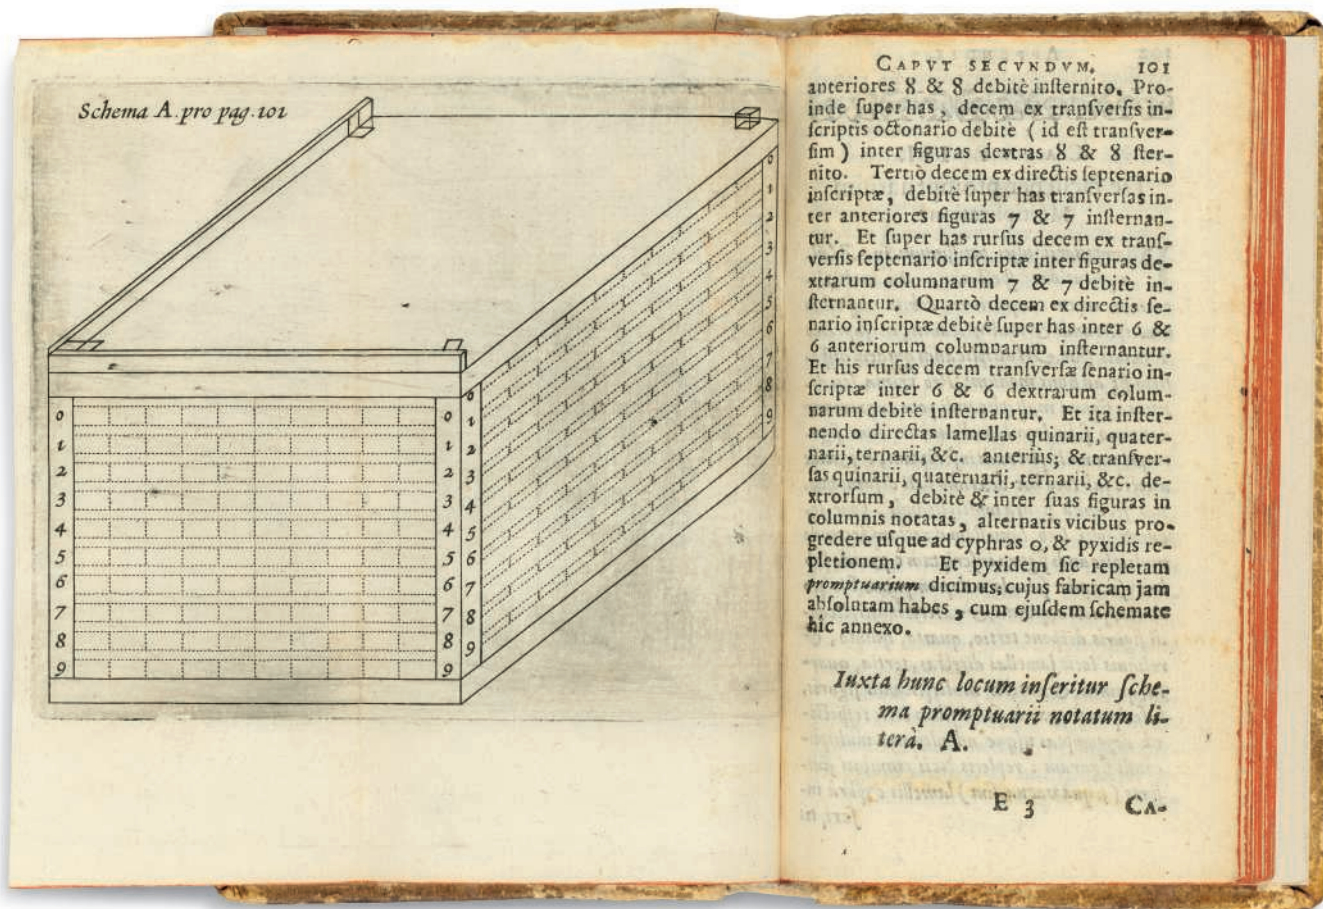 Schema A pro pag. 101
0 0
1 1
2 2
3 3
4 4
5 5
6 6
7 7
8 8
9 9
0 0
1 1
2 2
3 3
4 4
5 5
6 6
7 7
8 8
9 9
CAPVT SECVNDVM. 101
anteriores 8 & 8 debitè inſternito. Pro-
inde ſuper has, decem ex tranſverſis in-
ſcriptis octonario debitè (id eſt tranſver-
ſim) inter figuras dextras 8 & 8 ſter-
nito. Tertiò decem ex directis ſeptenario
inſcriptæ, debitè ſuper has tranſverſas in-
ter anteriores figuras 7 & 7 inſternan-
tur. Et ſuper has rurſus decem ex tranſ-
verſis ſeptenario inſcriptæ inter figuras de-
xtrarum columnarum 7 & 7 debitè in-
ſternantur. Quartò decem ex directis ſe-
nario inſcriptæ debitè ſuper has inter 6 &
6 anteriorum columnarum inſternantur.
Et his rurſus decem tranſverſæ ſenario in-
ſcriptæ inter 6 & 6 dextrarum colum-
narum debitè inſternantur. Et ita inſter-
nendo directas lamellas quinarii, quater-
narii, ternarii, &c. anteriùs; & tranſver-
ſas quinarii, quaternarii, ternarii, &c. de-
xtrorſum, debitè & inter ſuas figuras in
columnis notatas, alternatis vicibus pro-
gredere uſque ad cyphras 0, & pyxidis re-
pletionem. Et pyxidem ſic repletam
promptuarium dicimus; cujus fabricam jam
abſolutam habes, cum ejuſdem ſchemate
hic annexo.
Iuxta hunc locum inſeritur ſche-
ma promptuarii notatum li-
terà. A.
E 3 CA-